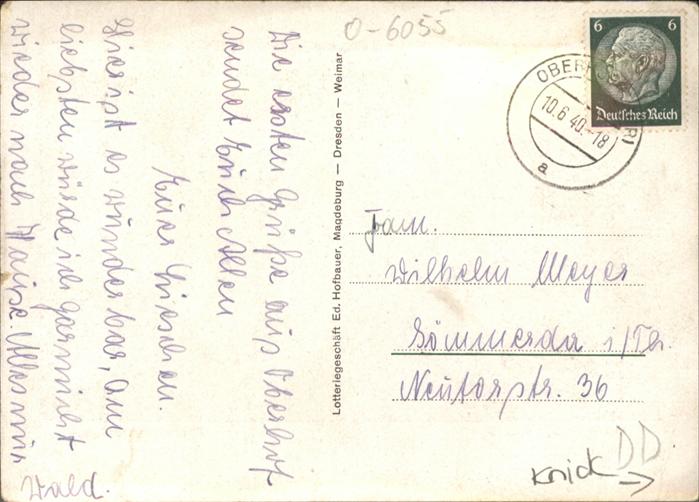 O-6055
6 6
Deutsches Reich
OBERHOF
10.6.40.-18
a
Die ersten Grüße aus Oberhof
sendet Euch Allen
Eure Lieschen.
Hier ist es wunderbar, am
liebsten würde ich garnicht
wieder nach Hause. Alles nur
Wald.
Lotteriegeschäft Ed. Hofbauer, Magdeburg — Dresden — Weimar
Fam.
Wilhelm Meyer
Sömmerda i/Th.
Neutorstr. 36
Knick
DD